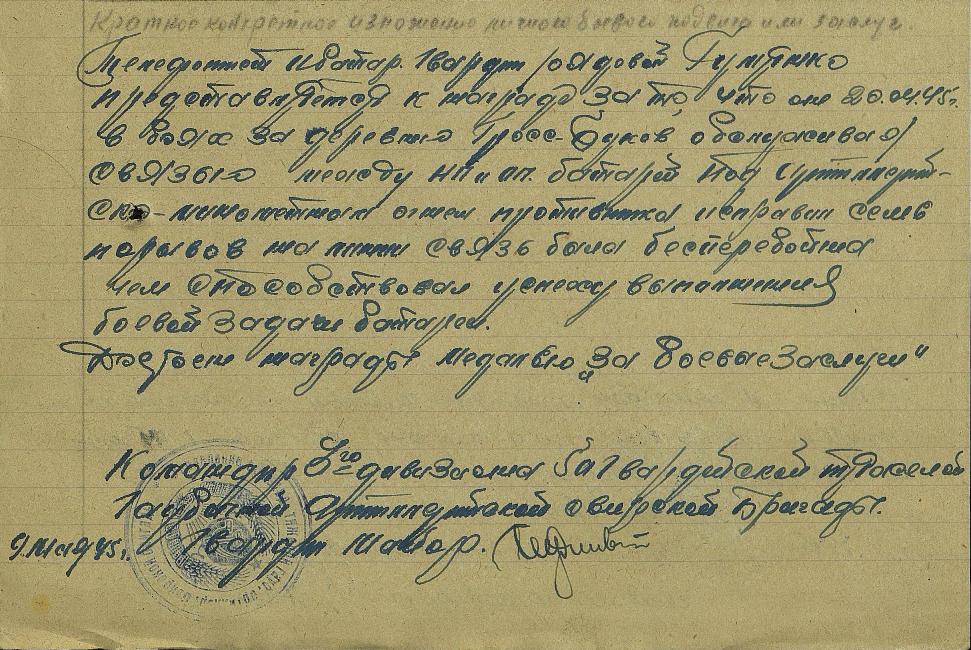 Краткое конкретное изложение личного боевого подвига или заслуг.
Телефонист батар. Гвардии рядовой
представляется к награде за то, что он 20.04.45г.
в боях за деревню Гросс-Буков, обслуживая
связью между НП и оп. батареи под артиллерий-
ско-минометным огнем противника исправил семь
порывов на линии связь была бесперебойна
чем способствовал успеху выполнения
боевой задачи батареи.
Достоин награды медалью „За боевые заслуги"
Командир го дивизиона гвардейской тяжелой
Гаубичной Артиллерийской свирской Бригады.
9 мая 45г. Гвардии Майор.